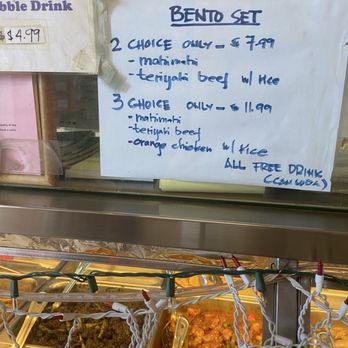 bble Drink
$4.99
BENTO SET
2 CHOICE ONLY - $7.99
- mahimahi
- teriyaki beef w/ rice
3 CHOICE ONLY - $11.99
- mahimahi
- teriyaki beef
- orange chicken w/ rice
ALL FREE DRINK
(CAN SODA)